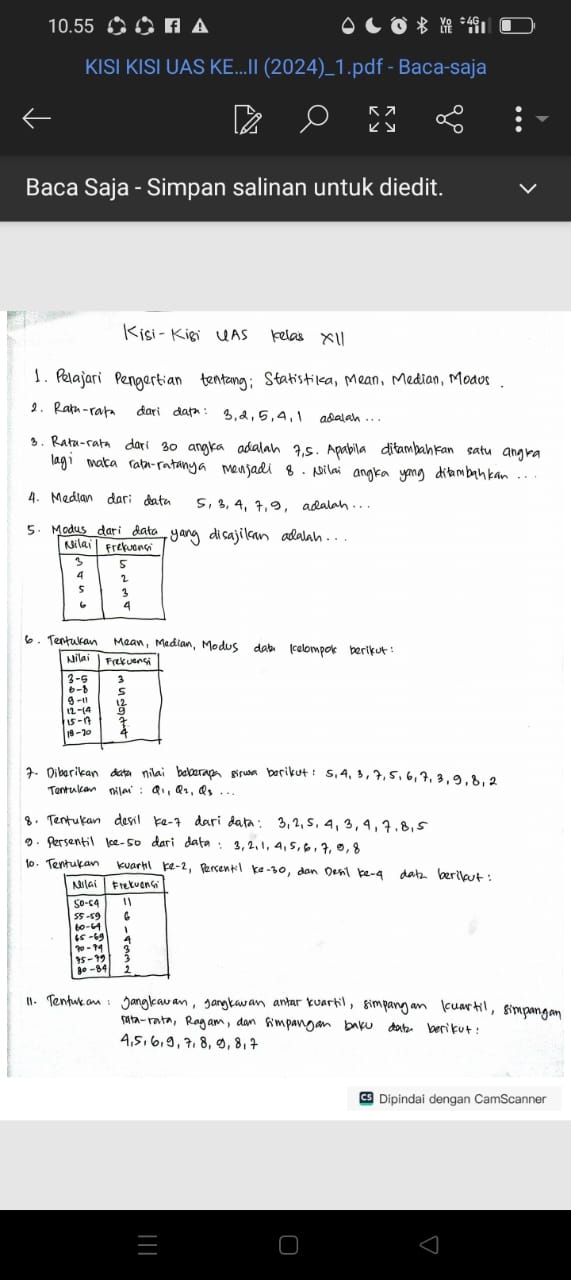 10.55
Vo LTE 4G
KISI KISI UAS KE...II (2024)_1.pdf - Baca-saja
Baca Saja - Simpan salinan untuk diedit.
Kisi-Kisi UAS kelas XII
1. Pelajari Pengertian tentang; Statistika, Mean, Median, Modus.
2. Rata-rata dari data: 3,2,5,4,1 adalah...
3. Rata-rata dari 30 angka adalah 7,5. Apabila ditambahkan satu angka
lagi maka rata-ratanya menjadi 8. Nilai angka yang ditambahkan...
4. Median dari data 5, 3, 4, 7, 9, adalah...
5. Modus dari data yang disajikan adalah...
Nilai Frekuensi
3 5
4 2
5 3
6 4
6. Tentukan Mean, Median, Modus data kelompok berikut:
Nilai Frekuensi
3-5 3
6-8 5
9-11 12
12-14 9
15-17 7
18-20 4
7. Diberikan data nilai beberapa siswa berikut: 5,4,3,7,5,6,7,3,9,8,2
Tentukan nilai: Q1, Q2, Q3...
8. Tentukan desil ke-7 dari data: 3,2,5,4,3,4,7,8,5
9. Persentil ke-50 dari data: 3,2,1,4,5,6,7,9,8
10. Tentukan kuartil ke-2, Persentil ke-30, dan Desil ke-4 data berikut:
Nilai Frekuensi
50-54 11
55-59 6
60-64 1
65-69 4
70-74 3
75-79 3
80-84 2
11. Tentukan: jangkauan, jangkauan antar kuartil, simpangan kuartil, simpangan
rata-rata, Ragam, dan simpangan baku data berikut:
4,5,6,9,7,8,9,8,7
CS Dipindai dengan CamScanner